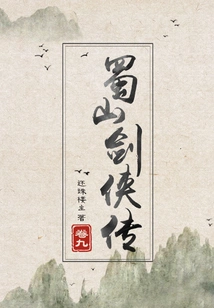 蜀山剑侠传
还珠楼主 著
卷九